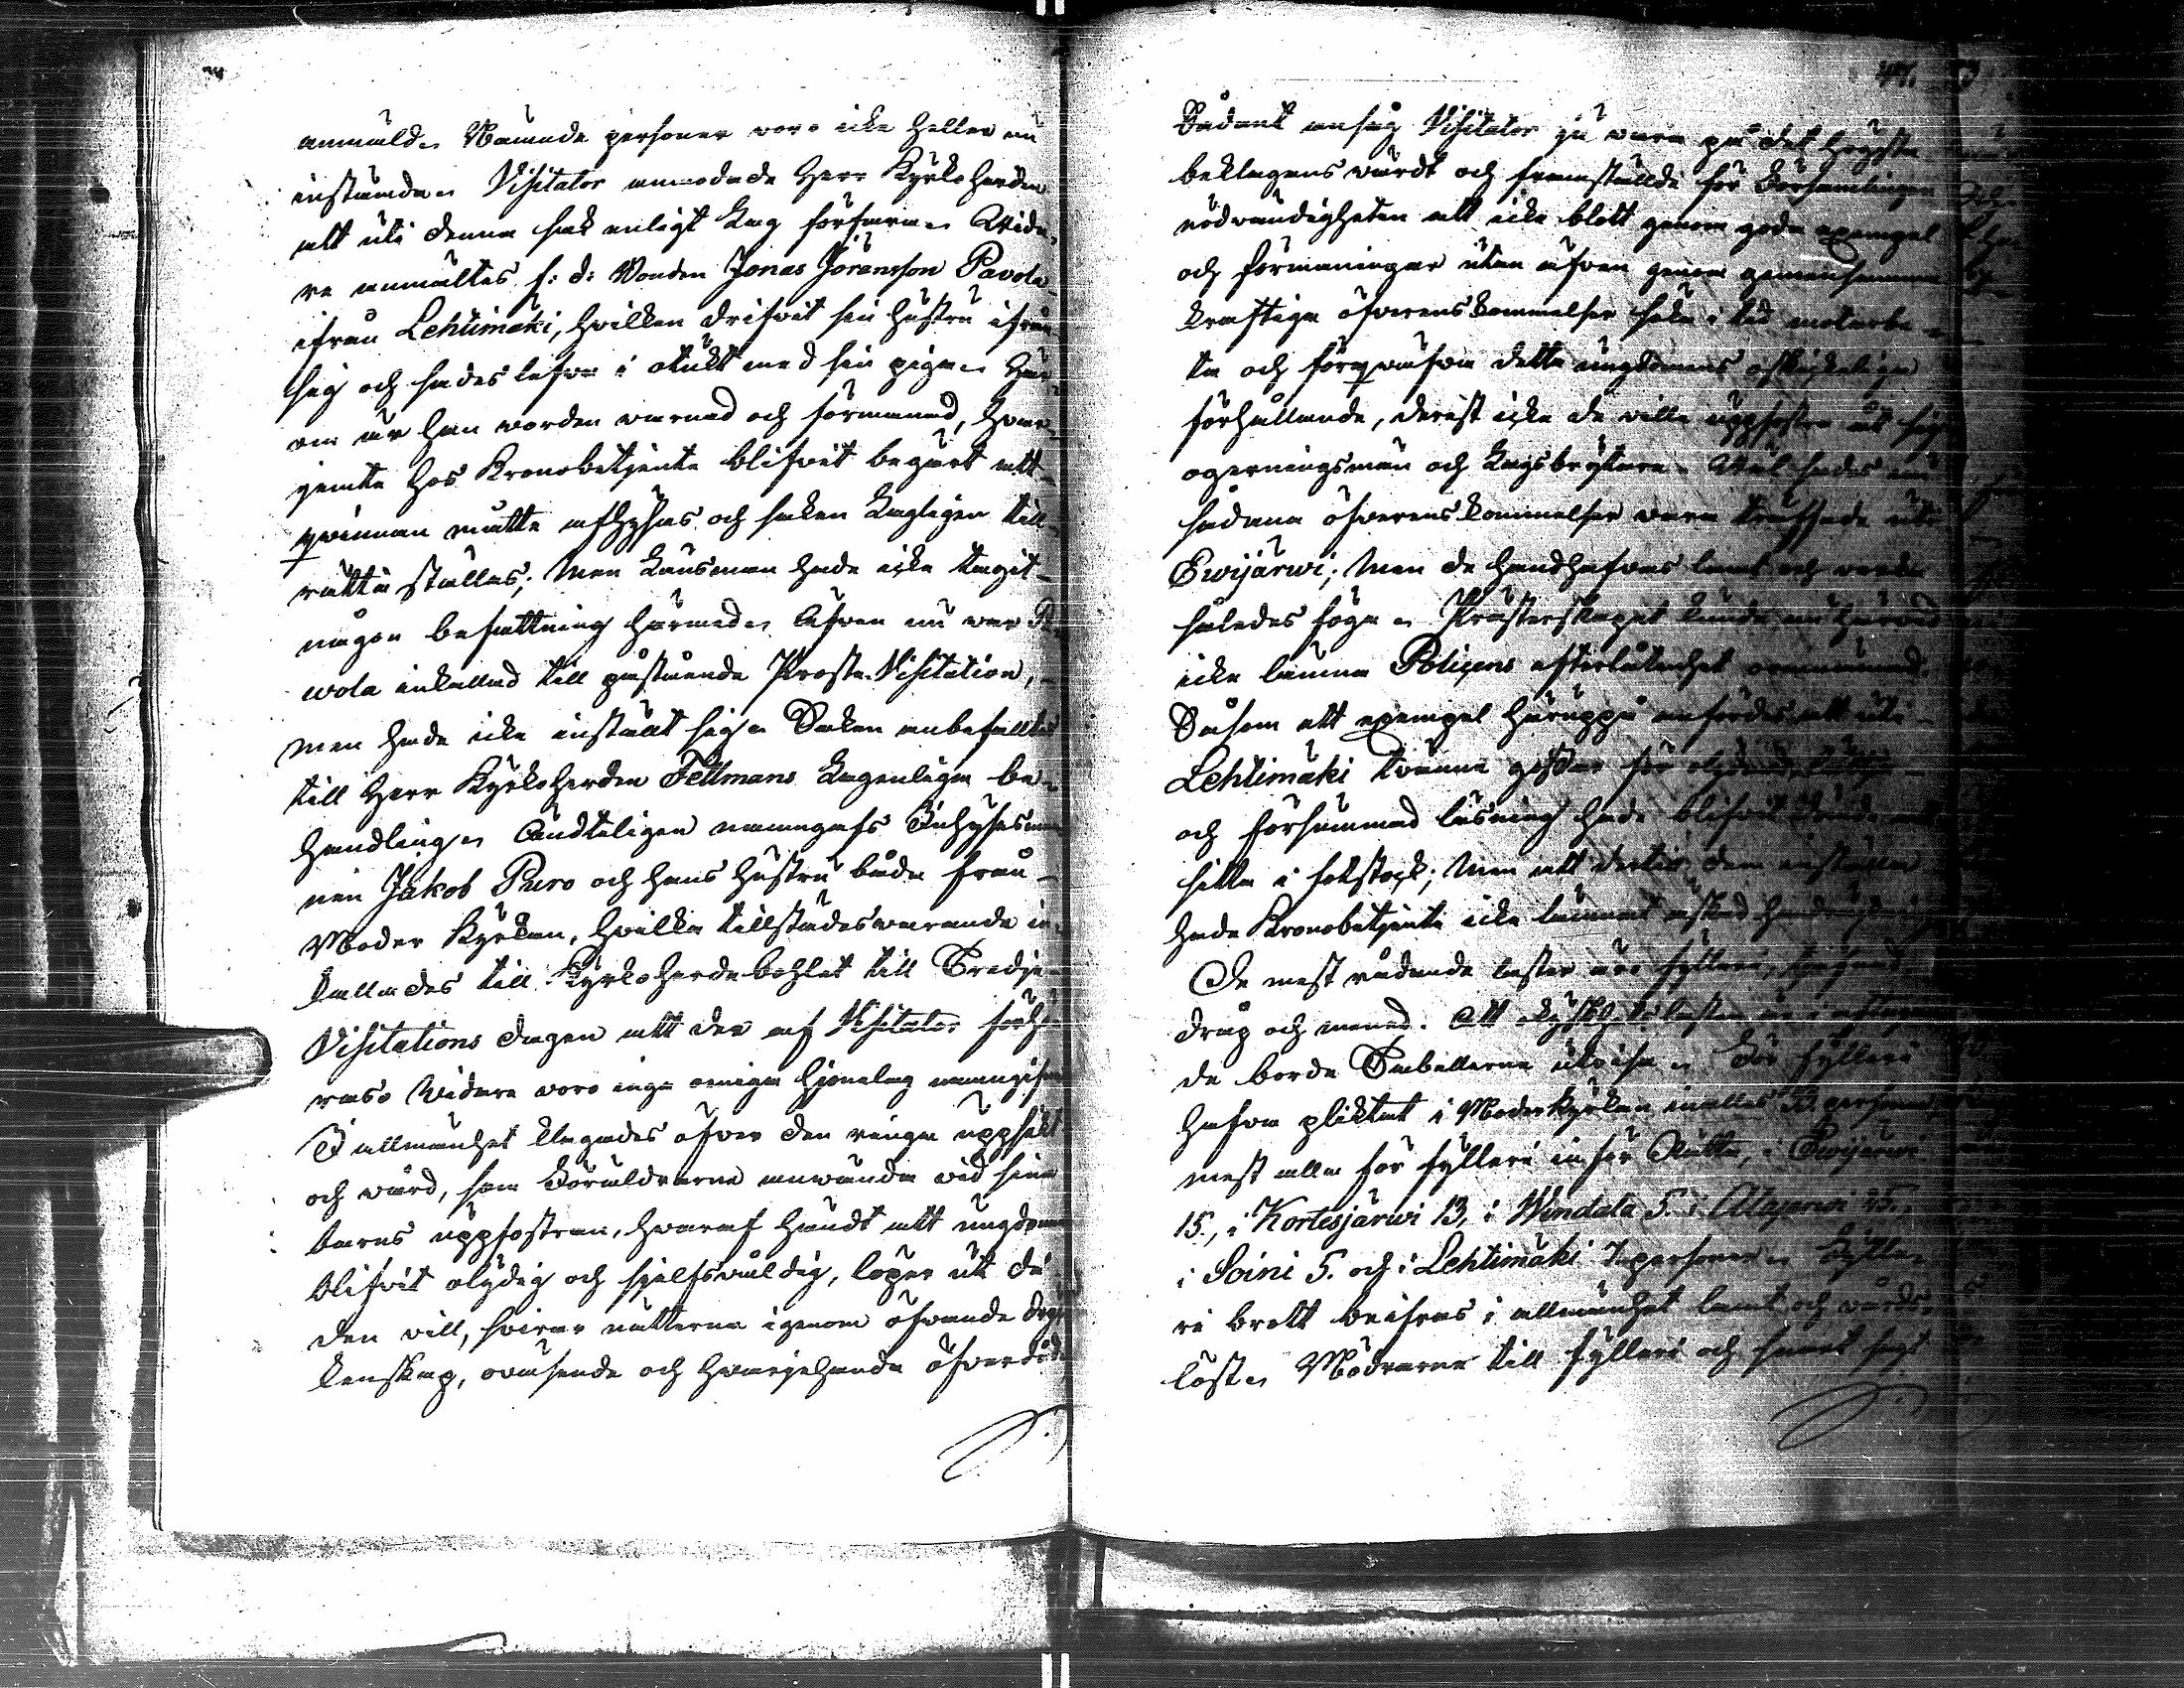 anmäld. Nämnde personer woro icke heller nu
instämda. Visitator anmodade Herr Kyrkoherden
att uti denna sak enligt Lag förfara. Vida-
re anmältes f: d: Bonden Jonas Jöransson Pavola
ifrån Lehtimäki, hvilken drifvit sin hustru ifrån
sig och sades lefva i otukt med sin piga. Här-
om är han worden warnad och förmanad, hvar-
jemte hos Kronobetjente blifvit begärt att
qvinnan måtte afhysas och saken Lagligen till-
rätta ställas; Men Länsman hade icke tagit
någon befattning härmed. Äfven nu war Pa-
wola inkallad till påstående Prosts-Visitation,
men hade icke instält sig. Saken anbefalltes
till Herr Kyrkoherden Fellmans Lagenliga be-
handling. Ändteligen namngafs Inhysesman
nen Jakob Puro och hans hustru både från
Moder Kyrkan, hvilka tillstädeswarande in-
kallades till Kyrkoherdebohlet till Tredje
Visitations dagen att der af Visitator förhö-
ras. Vidare woro inga oeniga hjonelag namngifna
I allmänhet klagades öfver den ringa uppsikt
och wård, som Föräldrarne använda vid sina
barns uppfostran, hvaraf händt att ungdomen
blifvit olydig och sjelfsvåldig, löper ut då
den vill, svirar nätterna igenom öfvande dryc-
kenskap, oväsende och hvarjehanda öfverdåd.
Sådant ansåg Visitator ju wara på det högsta
beklagans wärdt och framställde för Församlingen
nödvändigheten att icke blott genom goda exempel
och förmaningar utan äfven genom gemensamma
kraftiga öfverenskommelser söka i tid motarbe-
ta och förqväfva detta ungdomens oskickeliga
förhållande, derest icke de ville uppfostra åt sig
ogerningsmän och Lagbrytare. Väl sades nu
sådana öfverenskommelser wara träffade uti
Ewijärwi; Men de handhafvas lamt och werka
således föga. Presterskapet kunde nu härwid
icke lämna Polisens efterlåtenhet oanmärkt.
Såsom ett exempel häruppå anfördes att uti
Lehtimäki tvänne gossar för
och försummad läsning hade blifvit dömde att
sitta i fotstock; Men att dertill dem inställa
hade Kronobetjente icke lämnat
De mest rådande laster äro fylleri,
dråp och mened. Att
de borde Tabellerne utvisa. För fylleri
hafva pliktat i Moderkyrkan inalles 32 personer
mest alla för fylleri inför Rätta, i Ewijärwi
15, i Kortesjärwi 13, i Windala 5. i Alajärwi 25,
i Soini 5. och i Lehtimäki 7 personer. Fylle-
ri brott beifras i allmänhet lamt och vårds-
löst. Mödrarne till fylleri och snart sagt